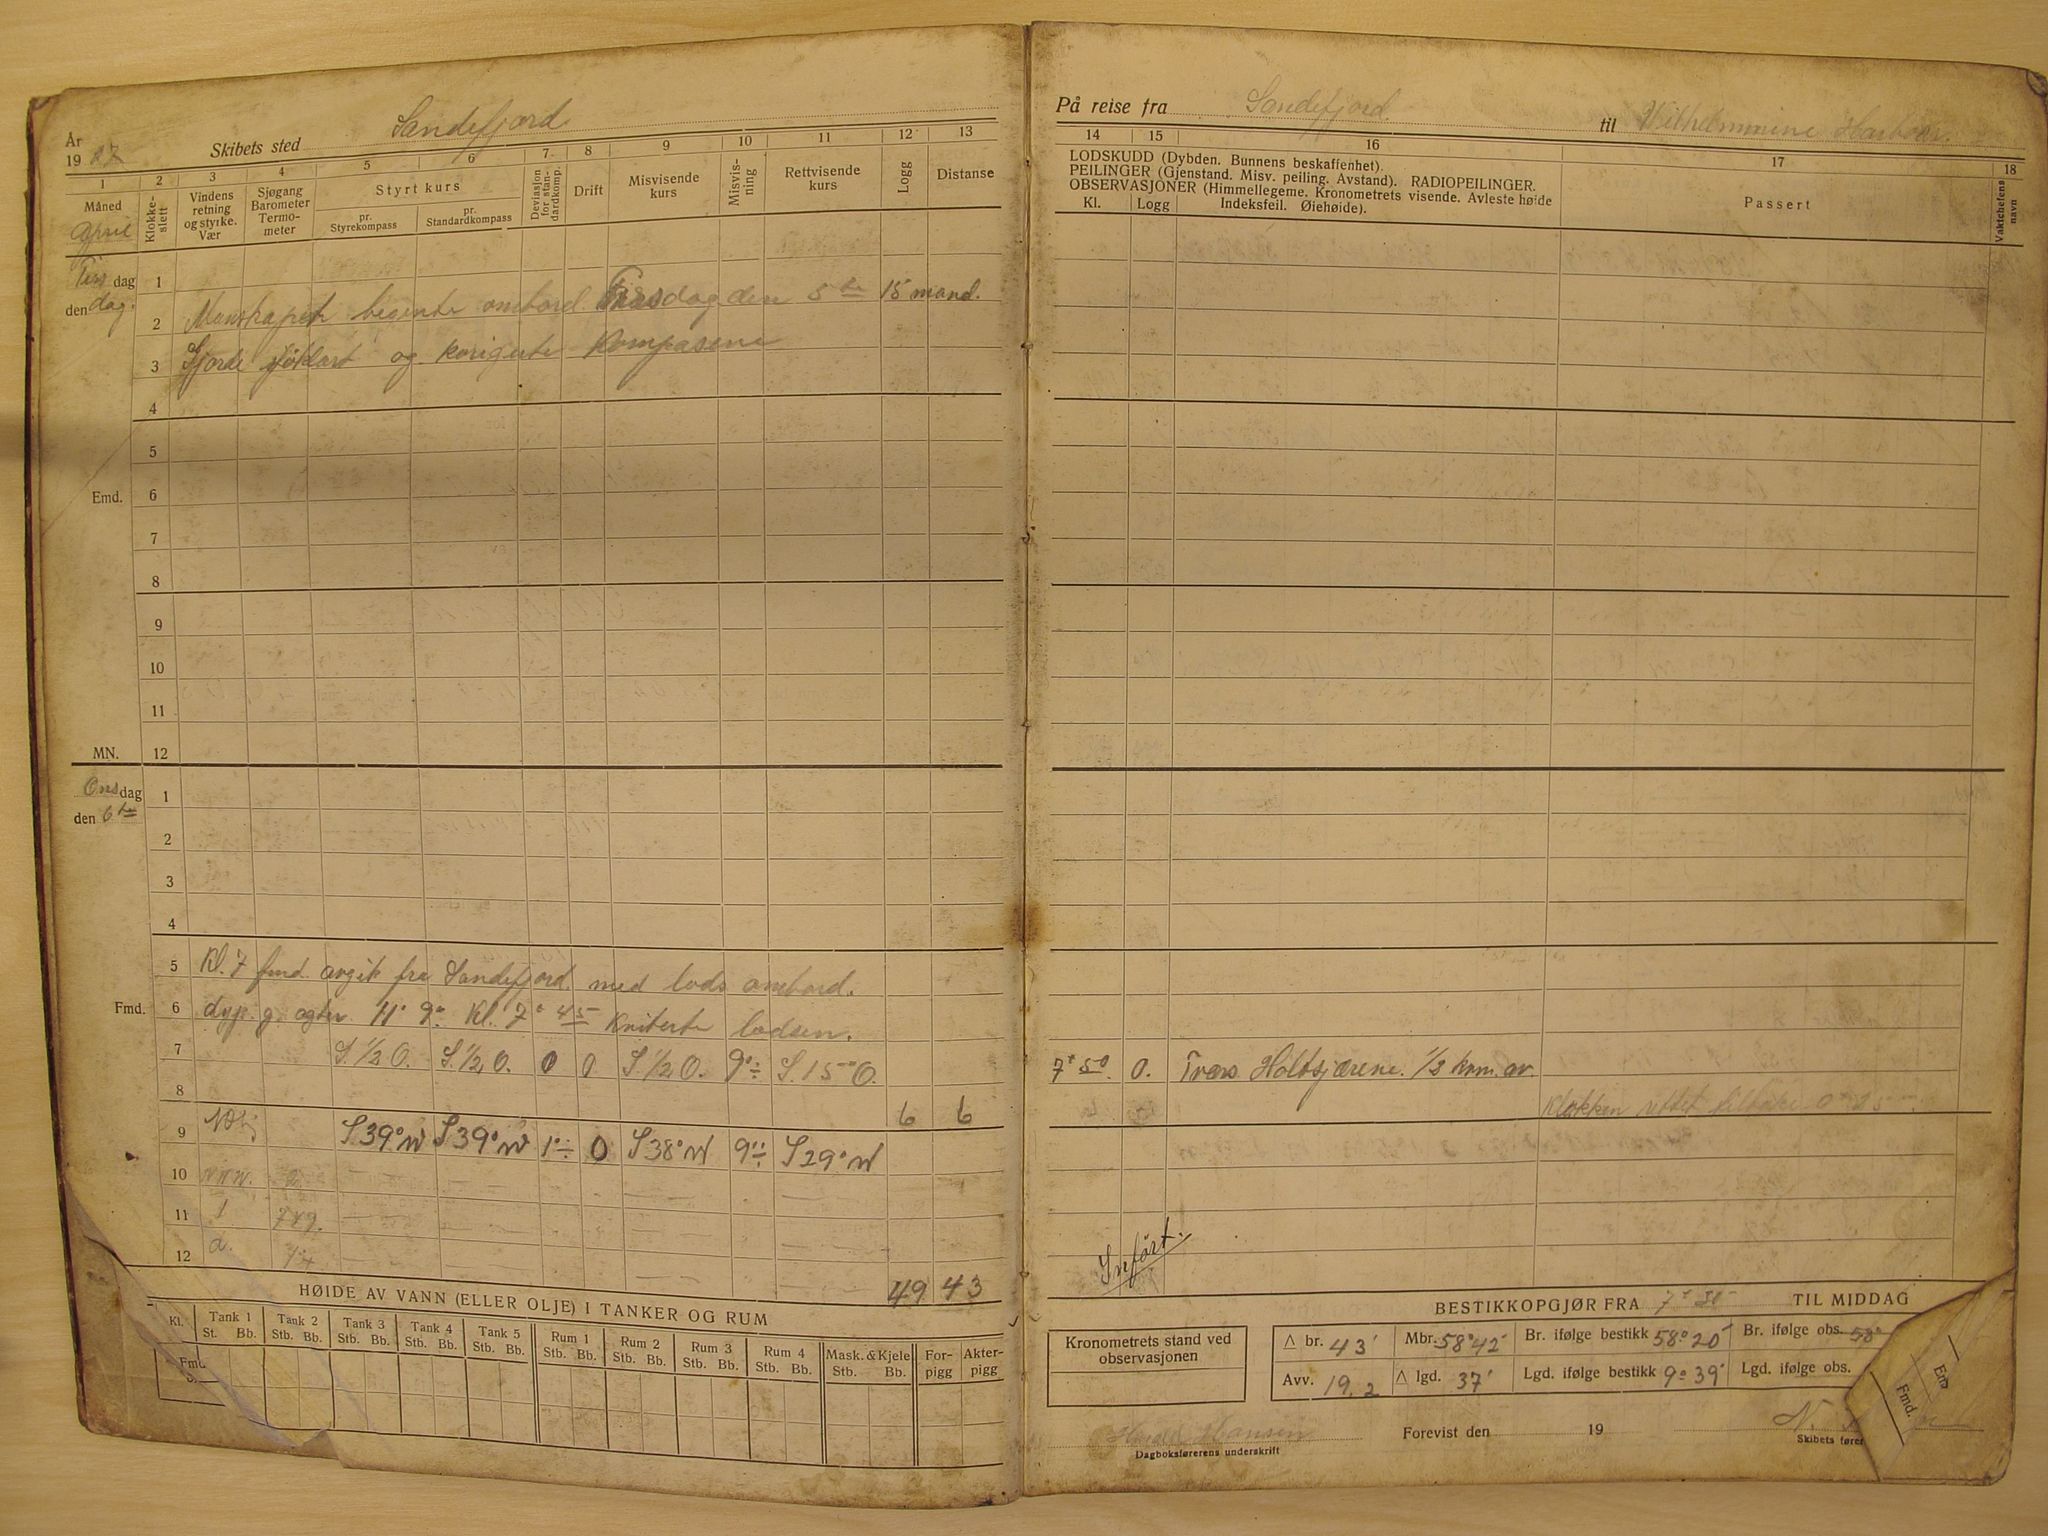 År
19 27
Skibets sted Sandefjord
1 2 3 4 5 6 7 8 9 10 11 12 13
Måned
Klokke-
slett
Vindens
retning
og styrke.
Vær
Sjøgang
Barometer
Termo-
meter
Styrt kurs
pr.
Styrekompass
pr.
Standardkompass
Deviasjon
for stan-
dardkomp.
Drift
Misvisende
kurs
Misvis-
ning
Rettvisende
kurs
Logg
Distanse
April
Tirs dag
den dag.
1
Manskapet ombord Tirsdag den 5te 15 mand.
2
Gjorde og korigerte Kompasene
3
4
5
Emd. 6
7
8
9
10
11
MN. 12
Ons dag 1
den 6te
2
3
4
5 Kl. 7 fmd. avgik fra Sandefjord med lods ombord.
Fmd. 6 dyp. g. agter 11' 9" Kl. 7 45 kviterte lodsen.
7 S. 1/2 O. S. 1/2 O. 0 0 S. 1/2 O. 9° ÷ S. 15° O.
8 6 6
9 S 39° W S 39° W 1° ÷ 0 S 38° W 9° ÷ S 29° W
10 NNW. 2
11 1 749.
12 a.
49 43
HØIDE AV VANN (ELLER OLJE) I TANKER OG RUM
Kl. Tank 1 Tank 2 Tank 3 Tank 4 Tank 5 Rum 1 Rum 2 Rum 3 Rum 4 Mask. & Kjele For-
pigg Akter-
pigg
St. Bb. Stb. Bb. Stb. Bb. Stb. Bb. Stb. Bb. Stb. Bb. Stb. Bb. Stb. Bb. Stb. Bb. Stb. Bb.
Fmd.
På reise fra Sandefjord. til Wilhelmmine Harbour.
14 15 16 17 18
LODSKUDD (Dybden. Bunnens beskaffenhet).
PEILINGER (Gjenstand. Misv. peiling. Avstand). RADIOPEILINGER.
OBSERVASJONER (Himmellegeme. Kronometrets visende. Avleste høide
Kl. Logg Indeksfeil. Øiehøide).
Passert
Vaktchefens
navn
7 50 0. Tvers Holtsjærene. 1/3 kvm. av.
Klokken rettet tilbake
Inført.
BESTIKKOPGJØR FRA 7 TIL MIDDAG
Kronometrets stand ved
observasjonen
△ br. 43' Mbr. 58° 42' Br. ifølge bestikk 58° 20' Br. ifølge obs. 58°
Avv. 19.2 △ lgd. 37' Lgd. ifølge bestikk 9° 39' Lgd. ifølge obs.
Fmd.
Harald Hansen
Dagboksførerens underskrift
Forevist den 19
Skibets fører